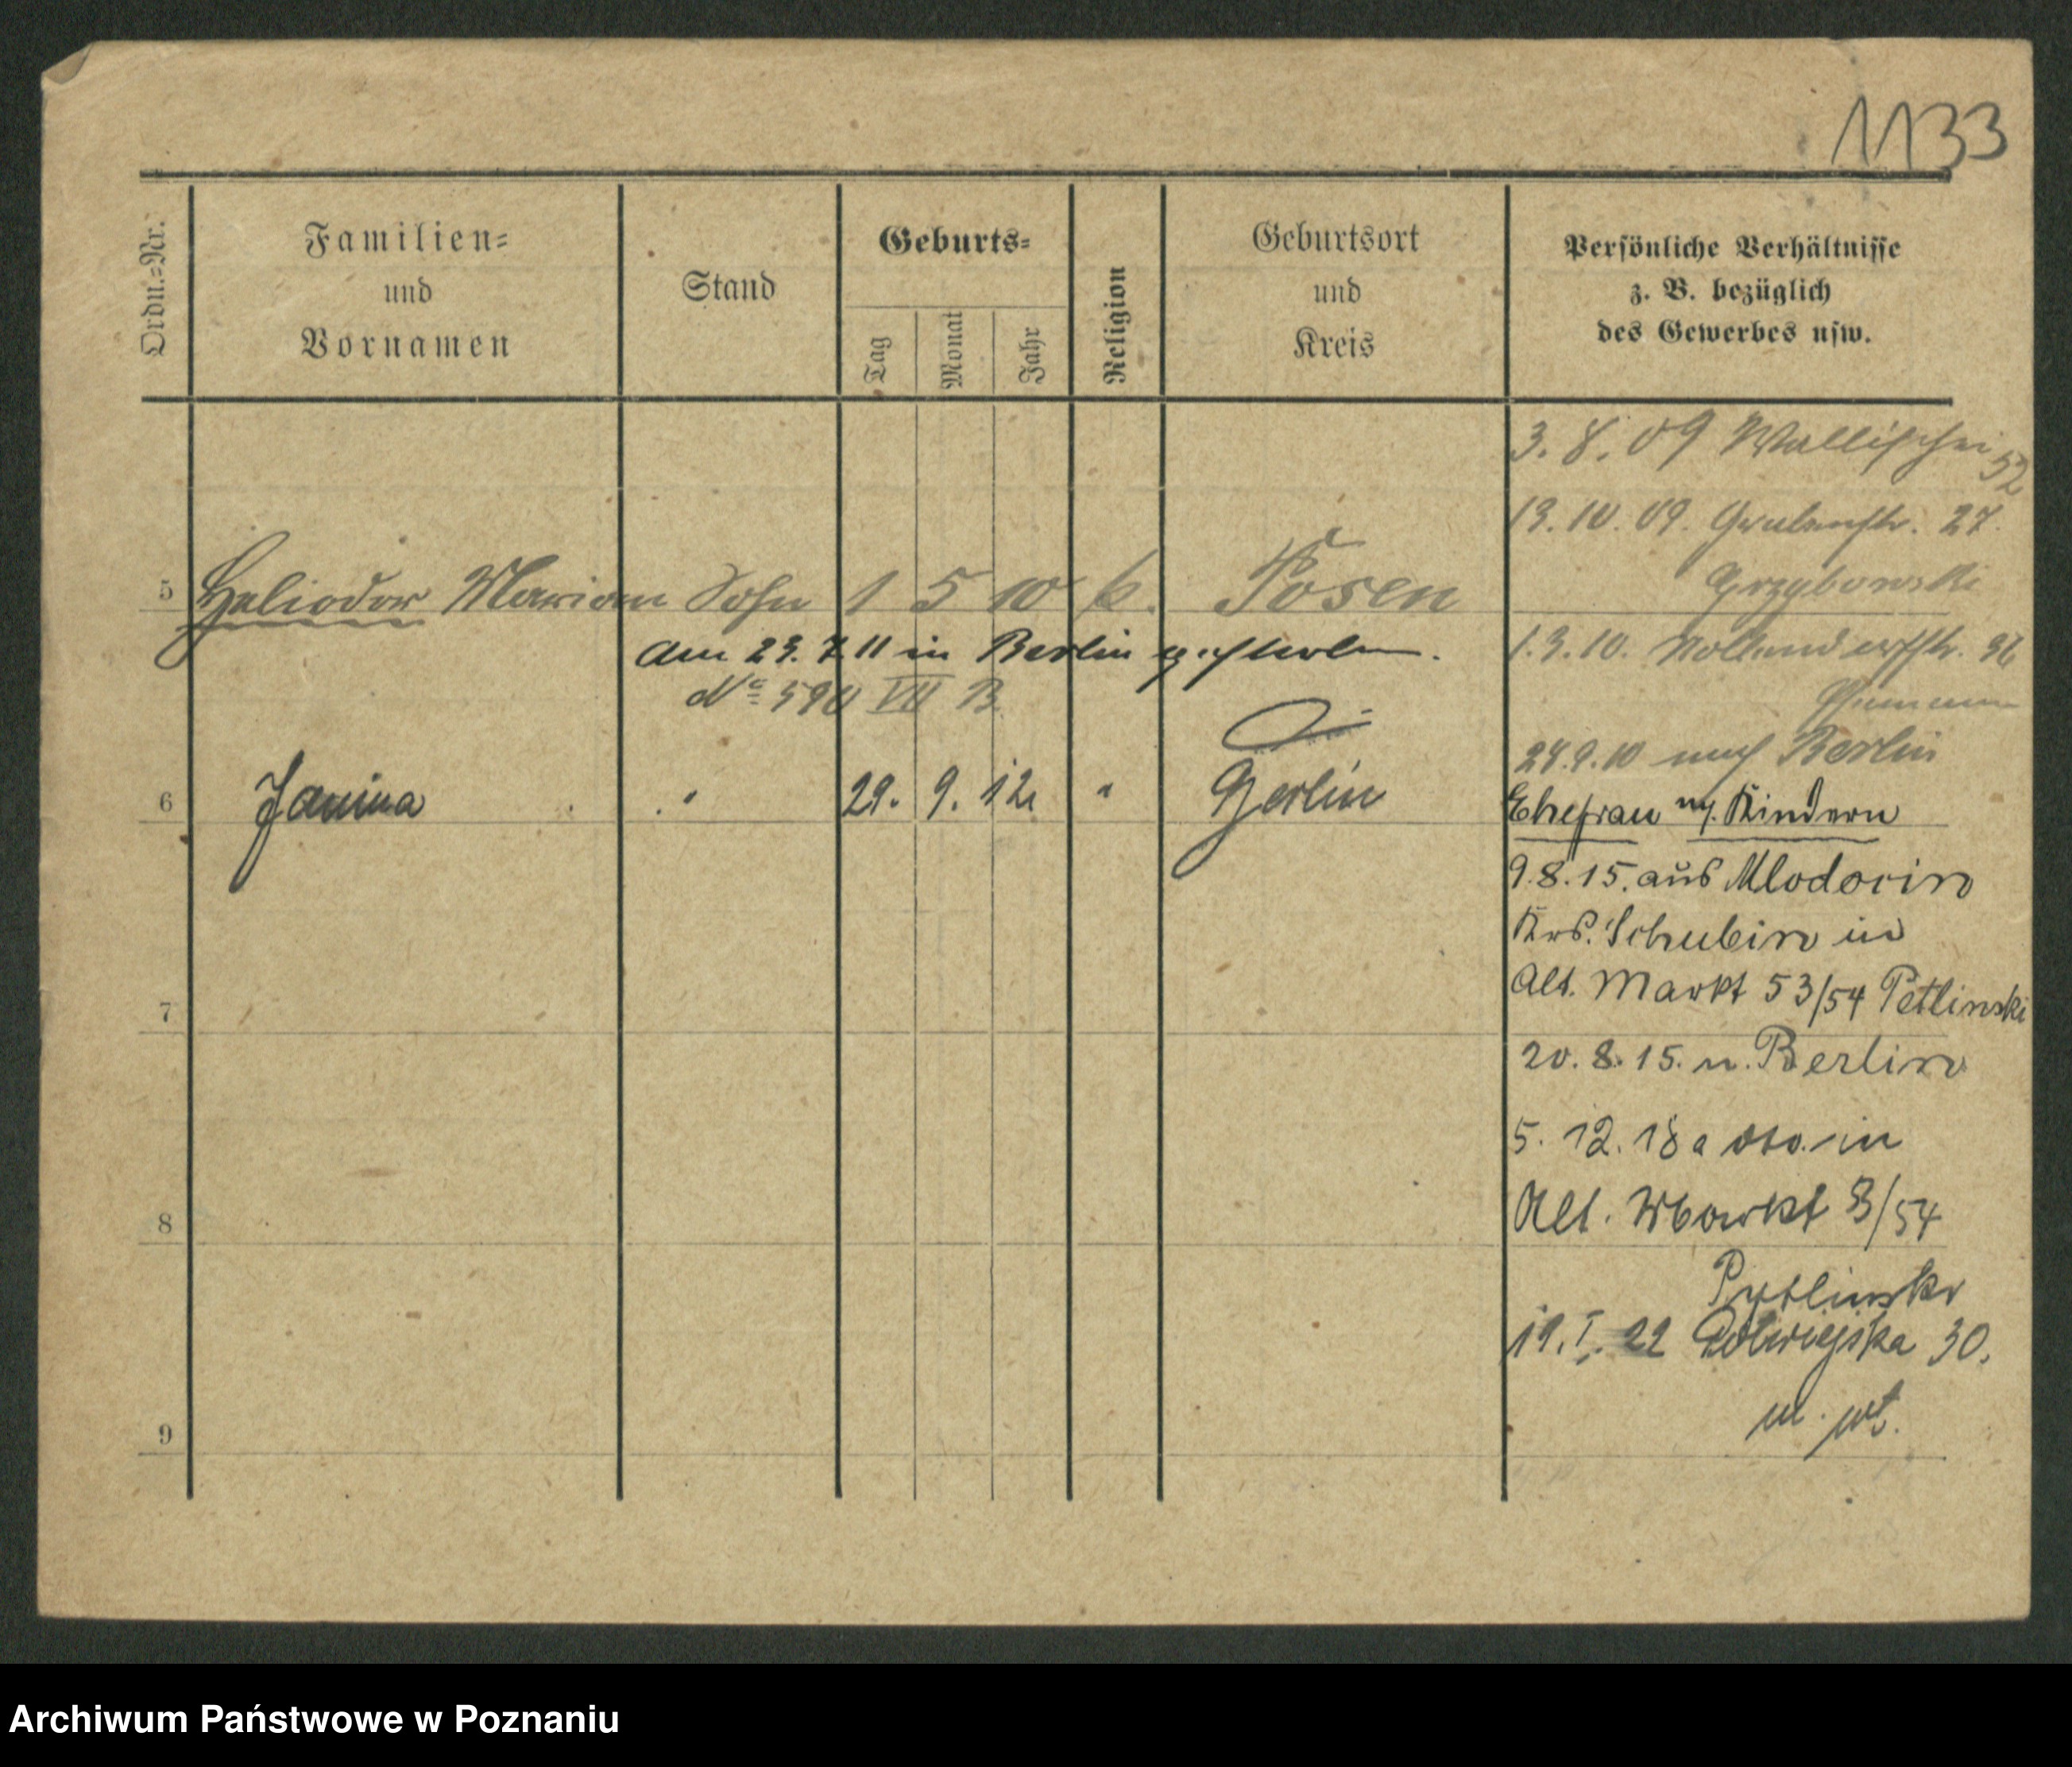 1133
Ordn.=Nr.
Familien=
und
Vornamen
Stand
Geburts=
Tag
Monat
Jahr
Religion
Geburtsort
und
Kreis
Persönliche Verhältnisse
z. B. bezüglich
des Gewerbes usw.
3. 8. 09 Wallischei 52
13. 10. 09. Grabenstr. 27.
Grzybowski
5 Heliodor Marian Sohn 1 5 10 k. Posen
am 23. 7. 11 in Berlin gestorben.
No 590 VII B
1. 3. 10. 
24. 9. 10 nach Berlin
6 Janina " 29. 9. 12 " Berlin
Ehefrau m. Kindern
9. 8. 15. aus Mlodocin
Krs. Schubin in
Alt. Markt 53/54 Petlinski
7
20. 8. 15. n. Berlin
5. 12. 18 a in
8
Alt. Markt 3/54
Pytlinski
11. I. 22 Półwiejska 30.
9